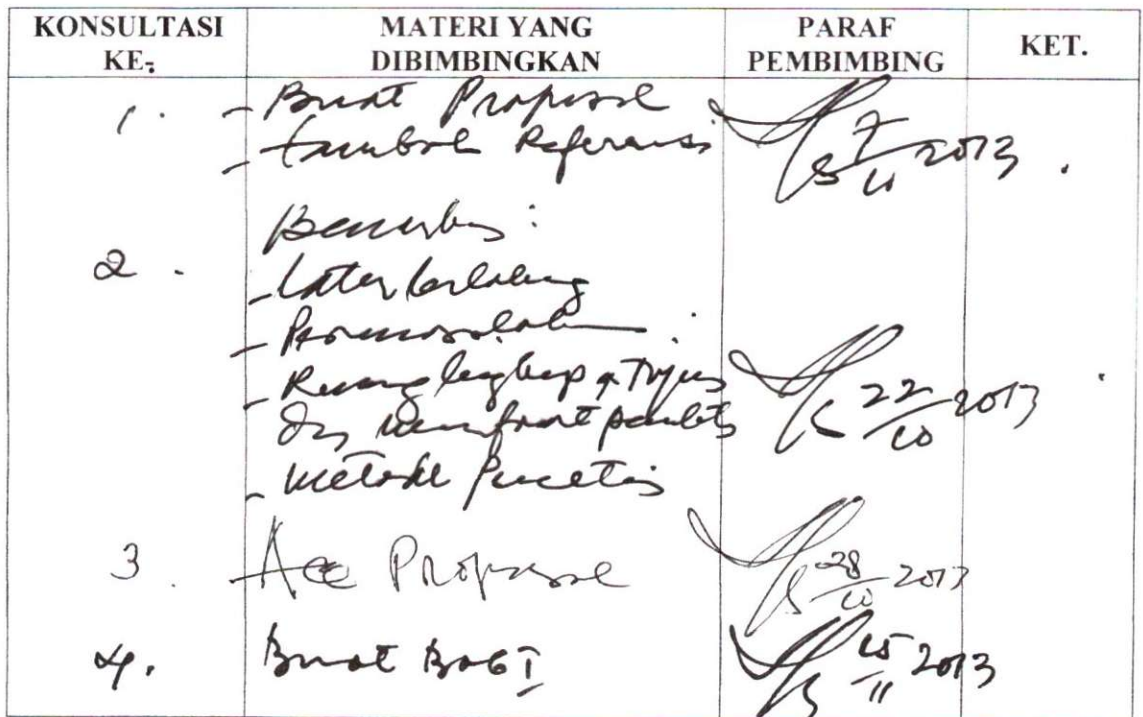 KONSULTASI KE-
MATERI YANG DIBIMBINGKAN
PARAF PEMBIMBING
KET.
1.
- Buat Proposal
- tambah Referensi
7/10 2013
2.
Benarkan:
- Latar belakang
- Permasalahan
- Ruang lingkup, Tujuan
dan manfaat penelitian
- Metode Penelitian
22/10 2013
3.
Acc Proposal
28/10 2013
4.
Buat Bab I
15/11 2013